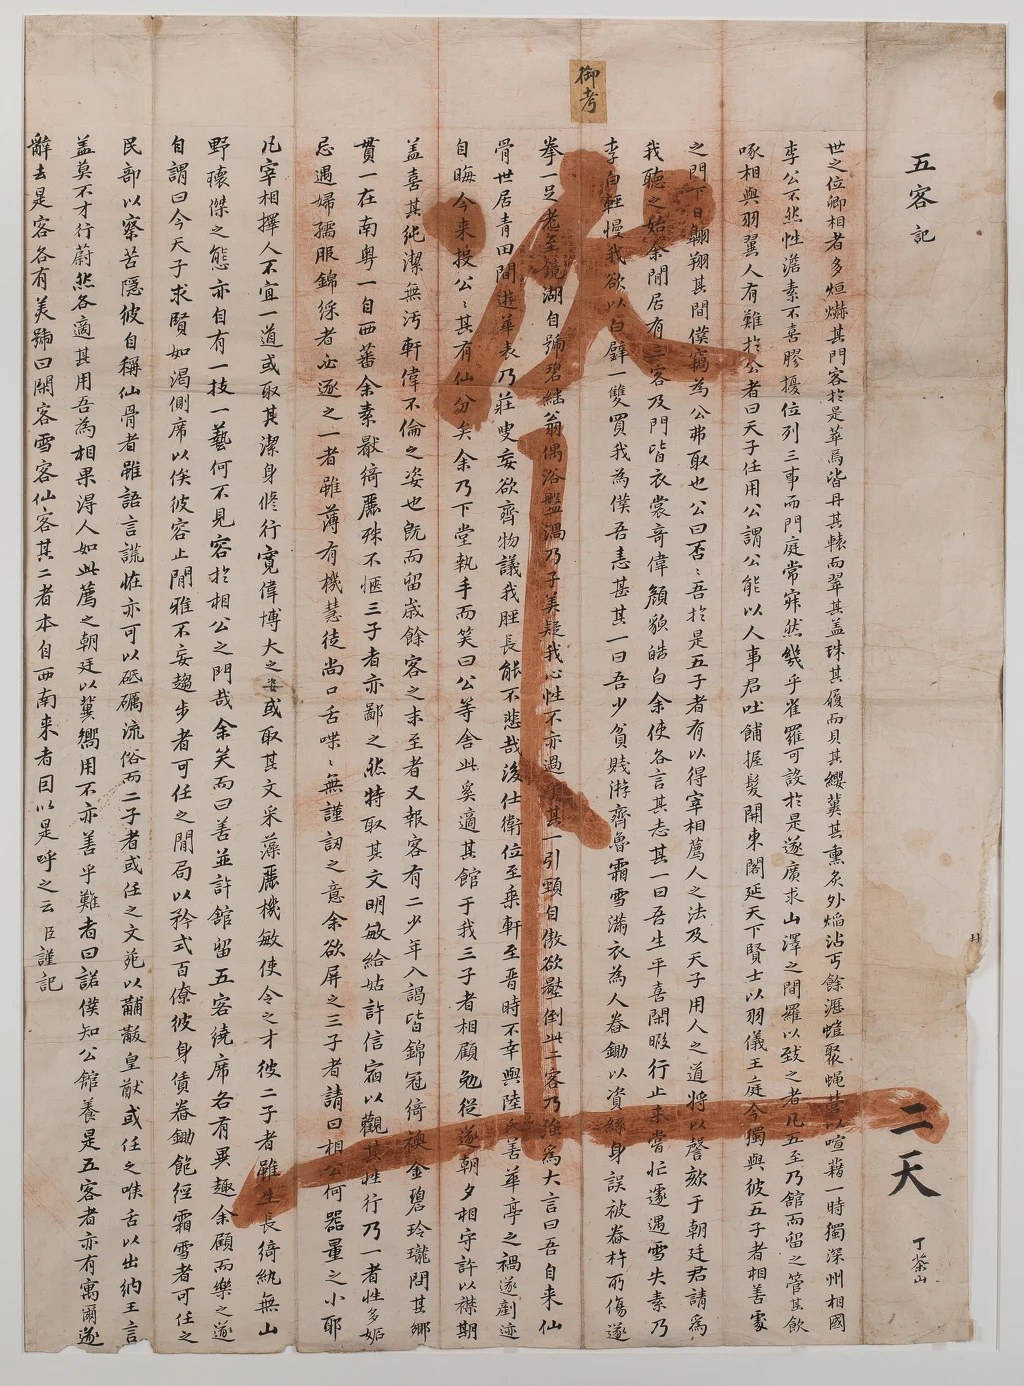 御考
五客記
二天
丁茶山
世之位卿相者多烜爀其門客於是華馬皆丹其轅而翠其盖珠其履而貝其纓冀其熏炙外焰沾丐餘瀝螘聚蝇營以喧藉一時獨深州相國
李公不然性澹素不喜膠擾位列三事而門庭常寂然幾乎雀羅可設於是遂廣求山澤之間羅以致之者凡五至乃館而留之管其飲
啄相與羽翼人有難於公者曰天子任用公謂公能以人事君吐餔握髮開東閣延天下賢士以羽儀王庭今獨與彼五子者相善處
之門下日翶翔其間僕竊為公弗取也公曰否〻吾於是五子者有以得宰相薦人之法及天子用人之道將以謦欬于朝廷君請為
我聽之始余閒居有三客及門皆衣裳奇偉顏貌皓白余使各言其志其一曰吾生平喜閑暇行止未嘗忙遽遇雪失素乃
李白輕慢我欲以白璧一雙買我為僕吾恚甚其一曰吾少貧賤游齊魯霜雪滿衣為人舂鋤以資絲身誤被舂杵所傷遂
拳一足老至鏡湖自號碧繼翁偶浴盤渦乃子美疑我心性不亦過乎其一引頸自傲欲壓倒此二客乃強為大言曰吾自来仙
骨世居青田間遊華表乃莊叟妄欲齊物議我脛長能不悲哉後仕衛位至乗軒至晋時不幸與陸氏善華亭之禍遂剷迹
自晦今来投公〻其有仙分矣余乃下堂執手而笑曰公等舍此奚適其館于我三子者相顧勉從遂朝夕相守許以襟期
盖喜其純潔無汚軒偉不倫之姿也既而留歳餘客之未至者又報客有二少年入謁皆錦冠綺襖金碧玲瓏問其鄉
貫一在南粤一自西蕃余素厭綺麗殊不愜三子者亦鄙之然特取其文明敏給姑許信宿以觀其性行乃一者性多妬
忌遇婦孺服錦綵者必逐之一者雖薄有機慧徒尚口舌喋〻無謹訒之意余欲屏之三子者請曰相公何器量之小耶
凡宰相擇人不宜一道或取其潔身修行寛偉博大之姿或取其文采藻麗機敏使令之才彼二子者雖生長綺紈無山
野瓌傑之態亦自有一技一藝何不見容於相公之門哉余笑而曰善並許館留五客繞席各有異趣余顧而樂之遂
自謂曰今天子求賢如渴側席以俟彼容止閒雅不妄趨步者可任之閒局以矜式百僚彼身債舂鋤飽經霜雪者可任之
民部以察苦隱彼自稱仙骨者雖語言謊恠亦可以砥礪流俗而二子者或任之文苑以黼黻皇猷或任之喉舌以出納王言
盖莫不才行蔚然各適其用吾為相果得人如此薦之朝廷以冀嚮用不亦善乎難者曰諾僕知公館養是五客者亦有寓爾遂
辭去是客各有美號曰閑客雪客仙客其二者本自西南来者因以是呼之云臣謹記